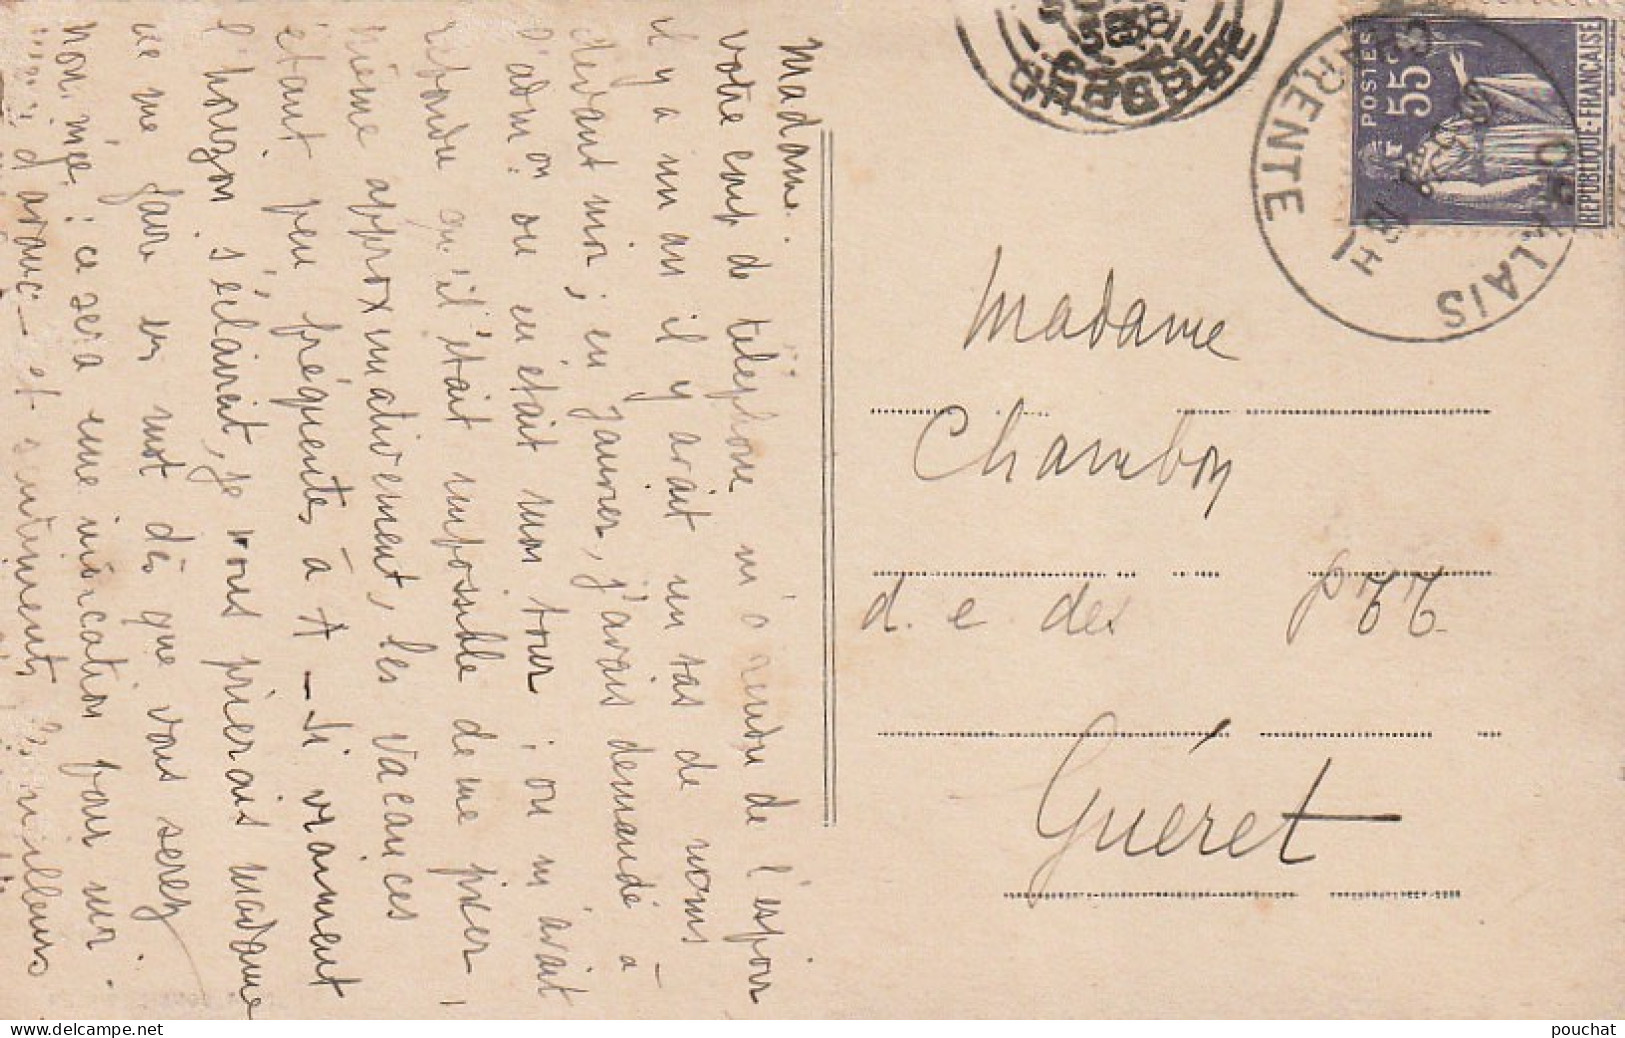 Madame.
votre coup de téléphone m'a rendu de l'espoir
il y a un an il y avait un tas de noms
devant moi ; en janvier, j'avais demandé à
l'adm.on où en était mon tour ; on m'avait
répondu qu'il était impossible de me fixer,
même approximativement, les vacances
étant peu fréquentes à A - Si vraiment
l'horizon s'éclaircit, je vous prierais Madame
de me faire un mot dès que vous serez
nommée : ce sera une indication pour moi.
Merci d'avance et sentiments les meilleurs
Madame
Chambon
d. e. des PTT
Guéret
POSTES
55c
REPUBLIQUE-FRANÇAISE
CHARENTE
18 H
delcampe.net
pouchat